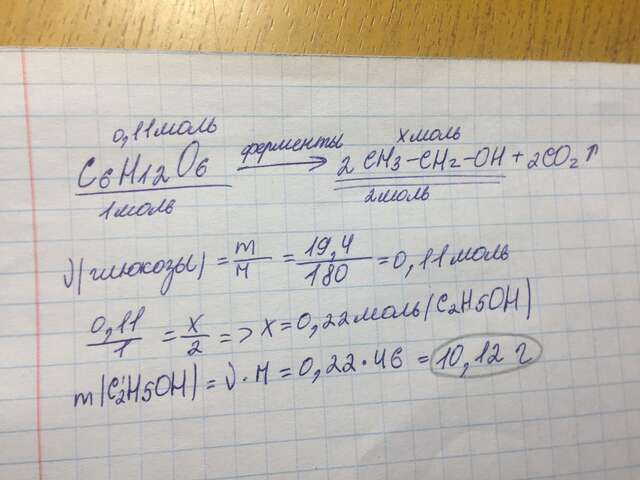 0,11моль хмоль
C6H12O6 ферменты → 2CH3-CH2-OH + 2CO2↑
1моль 2моль
ν(глюкозы) = m/M = 19,4/180 = 0,11моль
0,11/1 = x/2 => x = 0,22моль(C2H5OH)
m(C2H5OH) = ν·M = 0,22·46 = 10,12 г